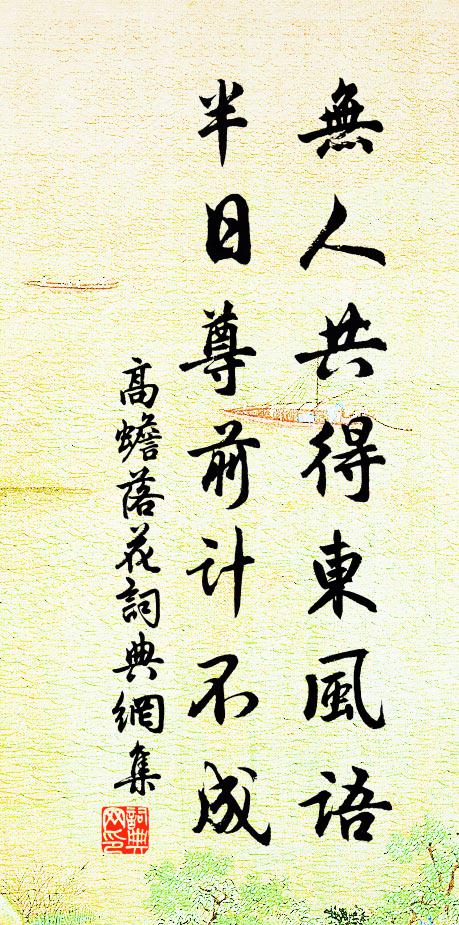 無人共得東風語
半日尊前計不成
高蟾落花詞典網集
詞典网印